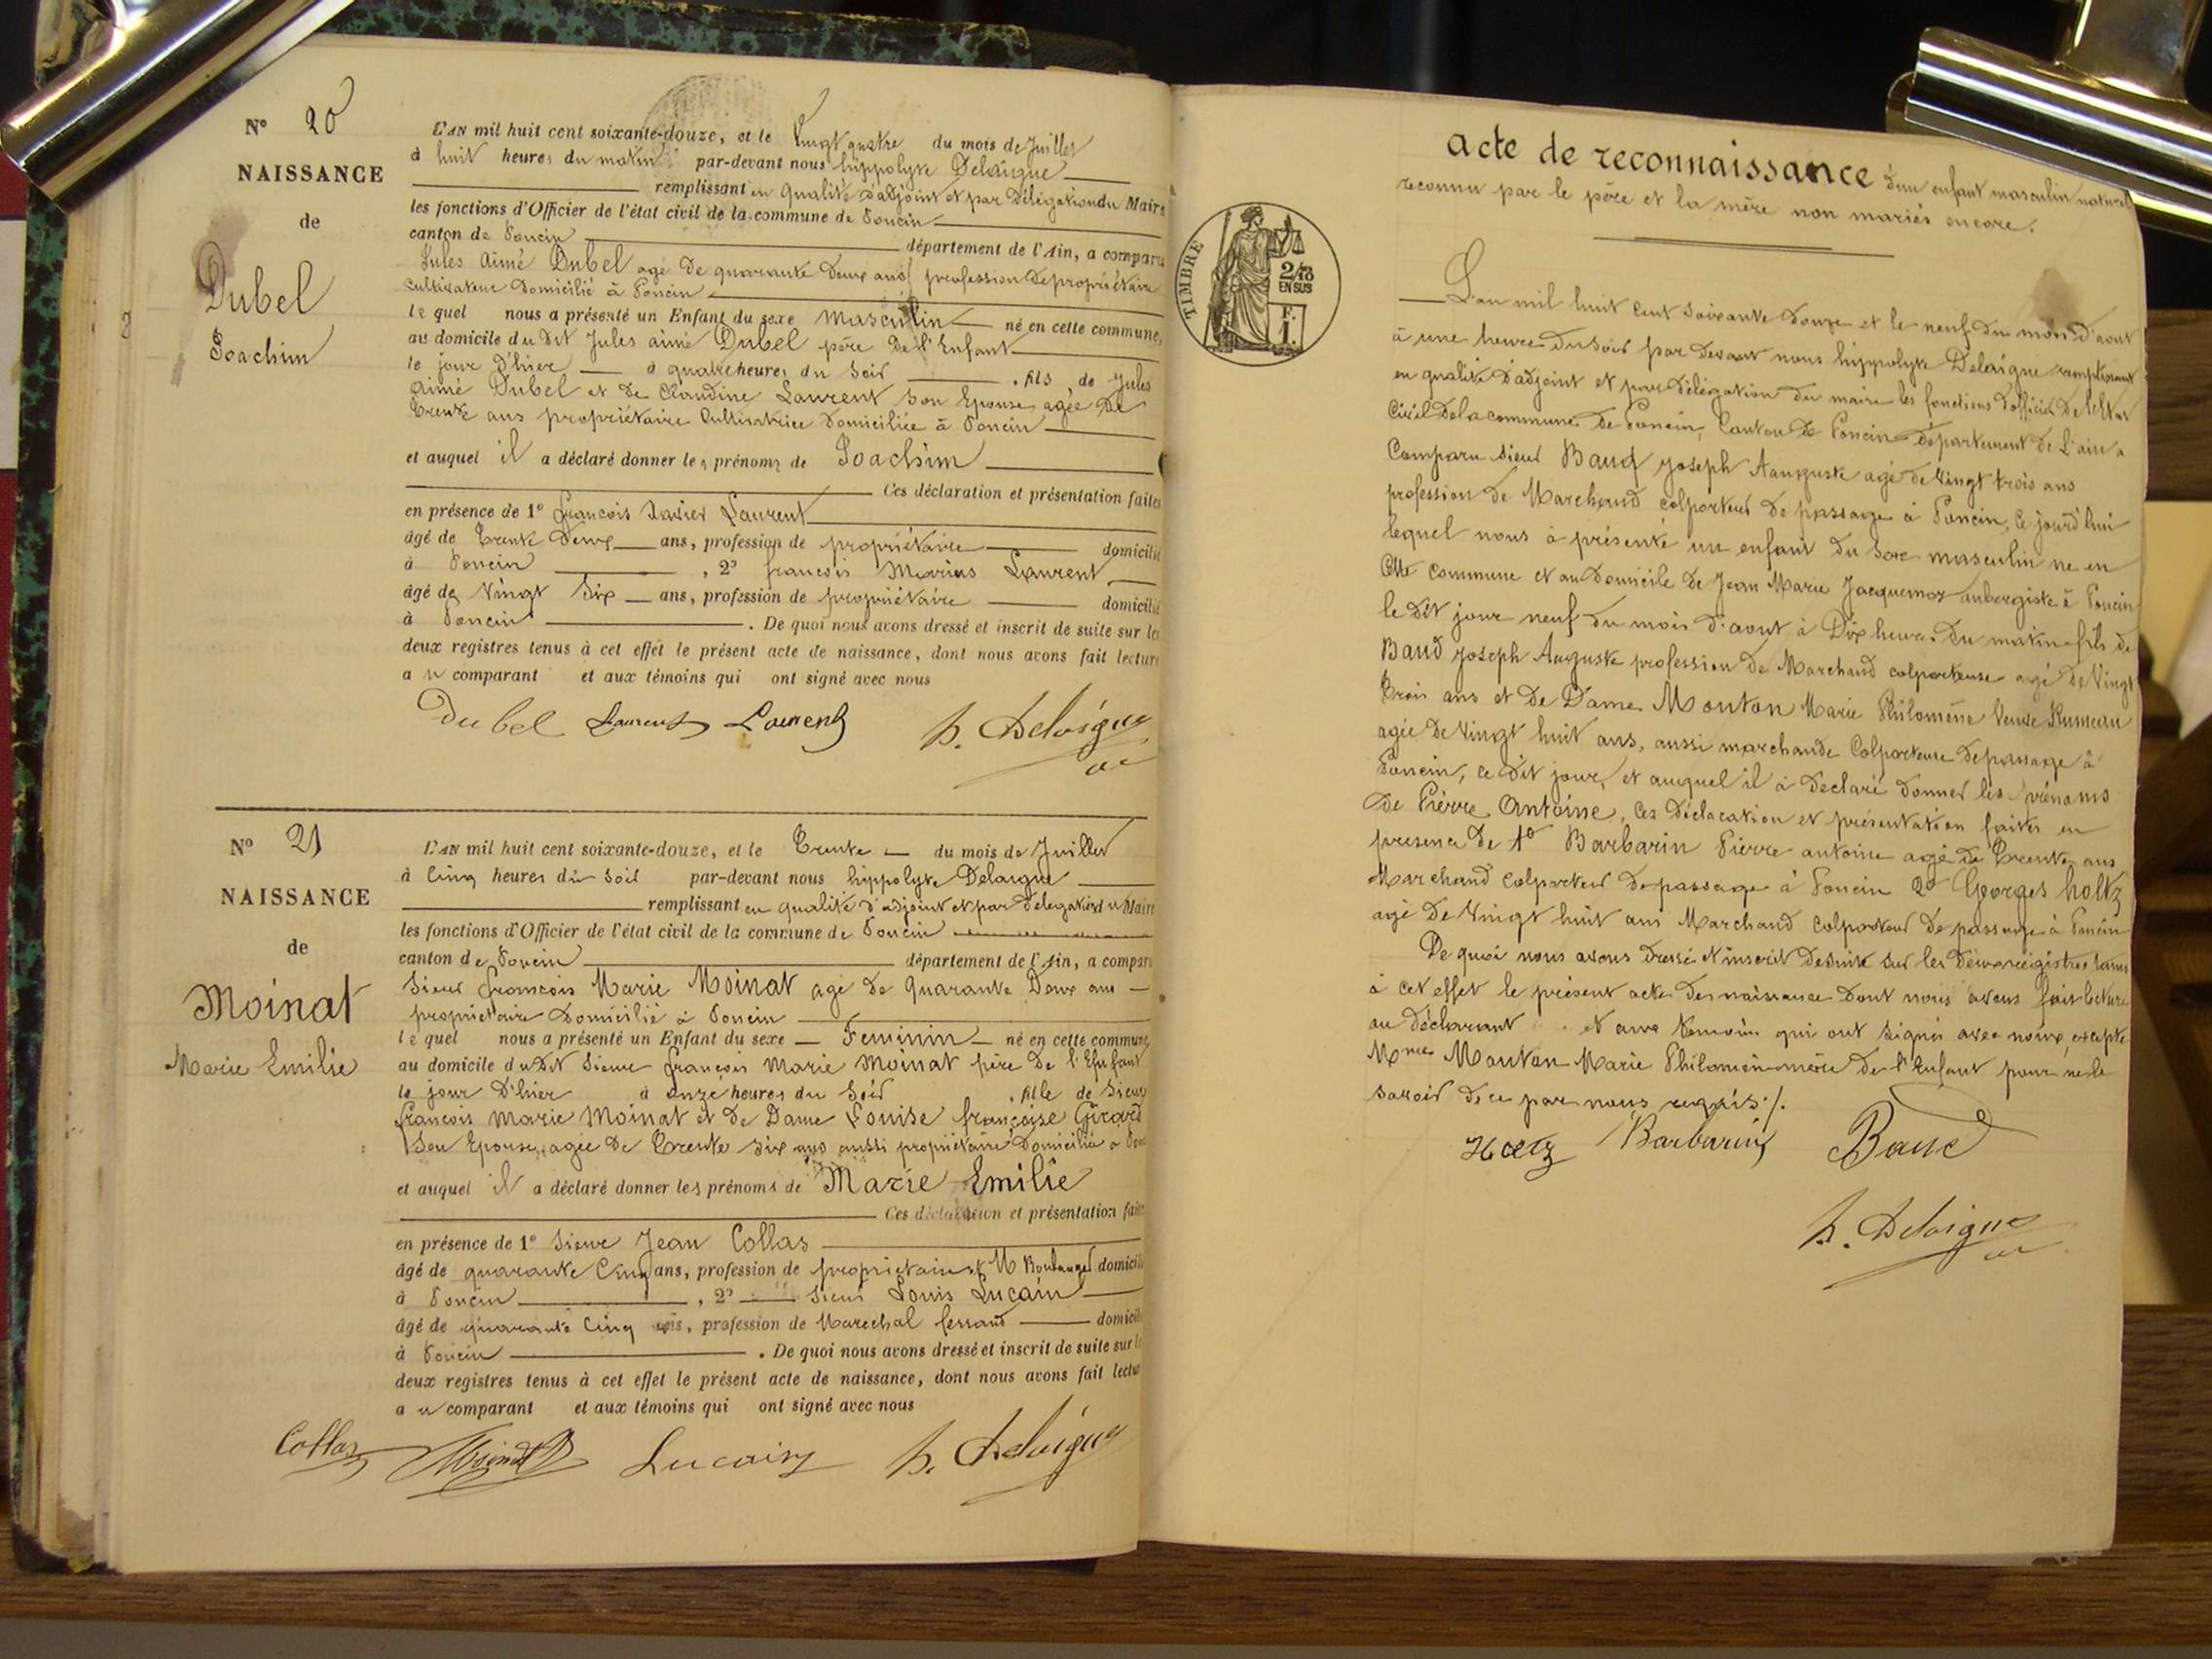 N° 20
NAISSANCE
de
Dubel
Joachim
L'AN mil huit cent soixante-douze, et le Vingt quatre du mois de Juillet
à huit heures du matin par-devant nous hippolyte Delaigue
remplissant en qualité d'adjoint et par délégation du Maire
les fonctions d'Officier de l'état civil de la commune de Poncin
canton de Poncin département de l'Ain, a comparu
Jules Aimé Dubel agé de quarante deux ans profession de propriétaire
cultivateur domicilié à Poncin
le quel nous a présenté un Enfant du sexe masculin né en cette commune,
au domicile du dit Jules aimé Dubel père de l'Enfant
le jour d'hier à quatre heures du soir . fils de Jules
aimé Dubel et de Claudine Laurent son Epouse agée de
trente ans propriétaire cultivatrice domiciliée à Poncin
et auquel il a déclaré donner les prénoms de Joachim
Ces déclaration et présentation faites
en présence de 1° françois Xavier Laurent
âgé de trente deux ans, profession de propriétaire domicilié
à Poncin , 2° françois Marius Laurent
âgé de Vingt Six ans, profession de propriétaire domicilié
à Poncin . De quoi nous avons dressé et inscrit de suite sur les
deux registres tenus à cet effet le présent acte de naissance, dont nous avons fait lecture
au comparant et aux témoins qui ont signé avec nous
Dubel Laurent Laurent h. Delaigue
N° 21
NAISSANCE
de
Moinat
Marie Emilie
L'AN mil huit cent soixante-douze, et le Trente du mois de Juillet
à Cinq heures du soir par-devant nous hippolyte Delaigue
remplissant en qualité d'adjoint et par délégation du Maire
les fonctions d'Officier de l'état civil de la commune de Poncin
canton de Poncin département de l'Ain, a comparu
Sieur françois Marie Moinat agé de quarante Deux ans
propriétaire Domicilié à Poncin
le quel nous a présenté un Enfant du sexe Feminin né en cette commune,
au domicile du Dit Sieur françois Marie Moinat père de l'Enfant
le jour D'hier à onze heures du Soir . fille de Sieur
françois Marie Moinat et de Dame Louise françoise Girard
Son Epouse, agée de trente six ans aussi propriétaire Domiciliée à
et auquel il a déclaré donner les prénoms de Marie Emilie
Ces déclaration et présentation faites
en présence de 1° Sieur Jean Collas
âgé de quarante Cinq ans, profession de propriétaire et M Boulanger domicilié
à Poncin , 2° Sieur Louis Lucain
âgé de quarante Cinq ans, profession de Marechal ferrant domicilié
à Poncin . De quoi nous avons dressé et inscrit de suite sur les
deux registres tenus à cet effet le présent acte de naissance, dont nous avons fait lecture
au comparant et aux témoins qui ont signé avec nous
Collas Moinat Lucain h. Delaigue
TIMBRE
2/10
EN SUS
F.
1.
acte de reconnaissance d'un enfant masculin naturel
reconnu par le père et la mère non mariés encore.
L'an mil huit cent soixante douze et le neuf du mois d'aout
à une heure du soir par devant nous hippolyte Delaigue remplissant
en qualité d'adjoint et par délégation du maire les fonctions d'officier de l'Etat
Civil de la commune de Poncin, Canton de Poncin département de L'ain a
Comparu sieur Baud Joseph Auguste agé de Vingt trois ans
profession de Marchand colporteur de passage à Poncin, ce jourd'hui
lequel nous à présenté un enfant du sexe masculin ne en
cette commune et au Domicile de Jean Marie Jacquemoz aubergiste à Poncin
le dit jour neuf du mois d'aout à Dix heures du matin fils de
Baud Joseph Auguste profession de Marchand colporteur agé de Vingt
trois ans et de Dame Mouton Marie Philomène Veuve Rumeau
agée de Vingt huit ans, aussi marchande Colporteuse de passage à
Poncin, ce dit jour, et auquel il à declaré donner les prénoms
de Pierre Antoine, Ces déclaration et présentation faites en
présence de 1° Barbarin Pierre antoine agé de trente ans
Marchand colporteur de passage à Poncin 2° Georges holtz
agé de Vingt huit ans Marchand colporteur de passage à Poncin
De quoi nous avons Dressé et inscrit De suite sur les deux régistres tenus
à cet effet le présent acte de naissance Dont nous avons fait lecture
au déclarant et aux témoins qui ont signés avec nous, excepté
Mme Mouton Marie Philomène mère de l'Enfant pour ne le
savoir de ce par nous requis ./.
Holtz Barbarin Baud
h. Delaigue